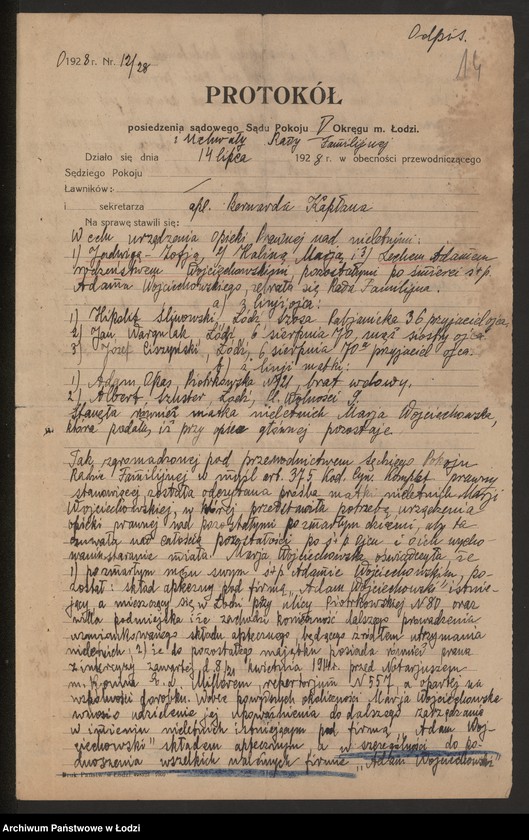 Odpis.
14
O 1928 r. Nr. 12/28
PROTOKÓŁ
posiedzenia sądowego Sądu Pokoju V Okręgu m. Łodzi.
: Uchwały Rady Familijnej
Działo się dnia 14 lipca 1928 r. w obecności przewodniczącego
Sędziego Pokoju
Ławników:
i sekretarza apl. Bernarda Kapłana
Na sprawę stawili się:
W celu urządzenia Opieki Prawnej nad nieletnimi:
1) Jadwigą-Zofją, 2) Haliną Marją i 3) Lechem Adamem
rodzeństwem Wojciechowskimi, pozostałymi po śmierci ś+p.
Adama Wojciechowskiego, zebrała się Rada Familijna.
a) z linji ojca:
1) Hipolit Śliwowski, Łódź Szosa Pabjanicka 36 przyjaciel ojca,
2) Jan Wargulak, Łódź, 6 sierpnia 70, mąż siostry ojca
3) Józef Ciszyński, Łódź, 6 sierpnia 70 przyjaciel ojca.
b) z linji matki:
1) Adam Piotrkowska 121, brat wdowy,
2) Albert Szuster Łódź, Pl. Wolności 9.
Stanęła również matka nieletnich Marja Wojciechowska,
która podała, iż przy opiece głównej pozostaje
Tak zgromadzonej pod przewodnictwem Sędziego Pokoju
Radzie Familijnej w myśl art. 375 Kod. Cyw. Komplet prawny
stanowiącej została odczytana prośba matki nieletnich Marji
Wojciechowskiej, w której przedstawiła potrzebę urządzenia
opieki prawnej nad pozostałymi po zmarłym dziećmi, aby ta
czuwała nad całością pozostałości po ś+p ojcu i o ich wycho-
wanie staranie miała. Marja Wojciechowska oświadczyła, że
1) po zmarłym mężu swym ś+p Adamie Wojciechowskim, po-
został: skład apteczny pod firmą „Adam Wojciechowski" istnie-
jący, a mieszczący się w Łodzi przy ulicy Piotrkowskiej N 80 oraz
willa podmiejska i że zachodzi konieczność dalszego prowadzenia
wzmiankowanego składu aptecznego, będącego źródłem utrzymania
nieletnich; 2) że do pozostałego majątku posiada również prawa
z intercyzy zawartej d. 8/21 kwietnia 1914 r. przed Notarjuszem
m. Konina E. J. Millerem, repertorium N 557 a opartej na
wspólności dorobku. Wobec powyższych okoliczności Marja Wojciechowska
wnosi o udzielenie jej upoważnienia do dalszego zarządzania
w imieniu nieletnich istniejącym pod firmą „Adam Woj-
ciechowski" składem aptecznym, a w szczególności do po-
dnoszenia wszelkich należnych firmie „Adam Wojciechowski"
Archiwum Państwowe w Łodzi